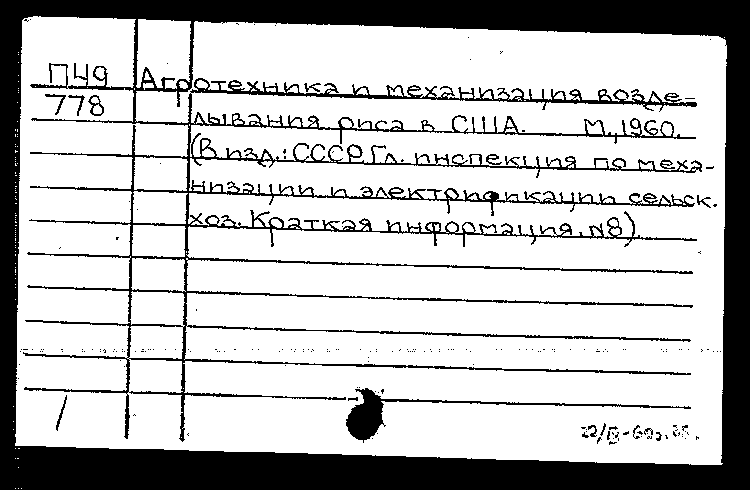 П49 Агротехника и механизация возде-
778 лывания риса в США. М., 1960.
(В изд.: СССР. Гл. инспекция по меха-
низации и электрификации сельск.
хоз. Краткая информация. N8)
/